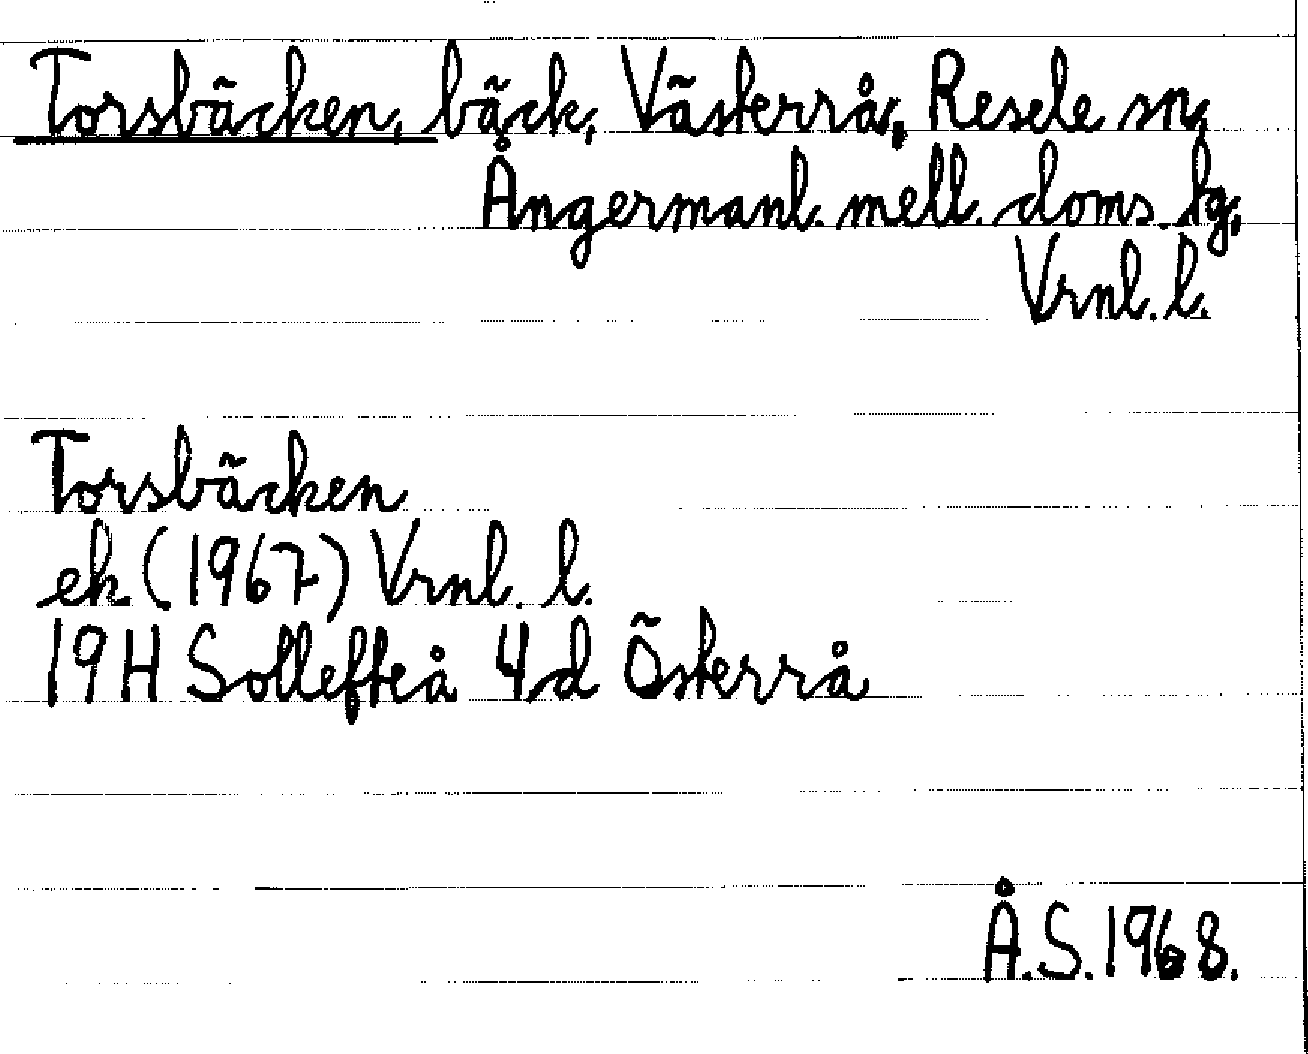 Torsbäcken, bäck, Västerrå, Resele sn,
Ångermanl. mell. doms. tg,
Vrnl. l.
Torsbäcken
ek (1967) Vrnl. l.
19H Sollefteå 4d Österrå
Å.S. 1968.